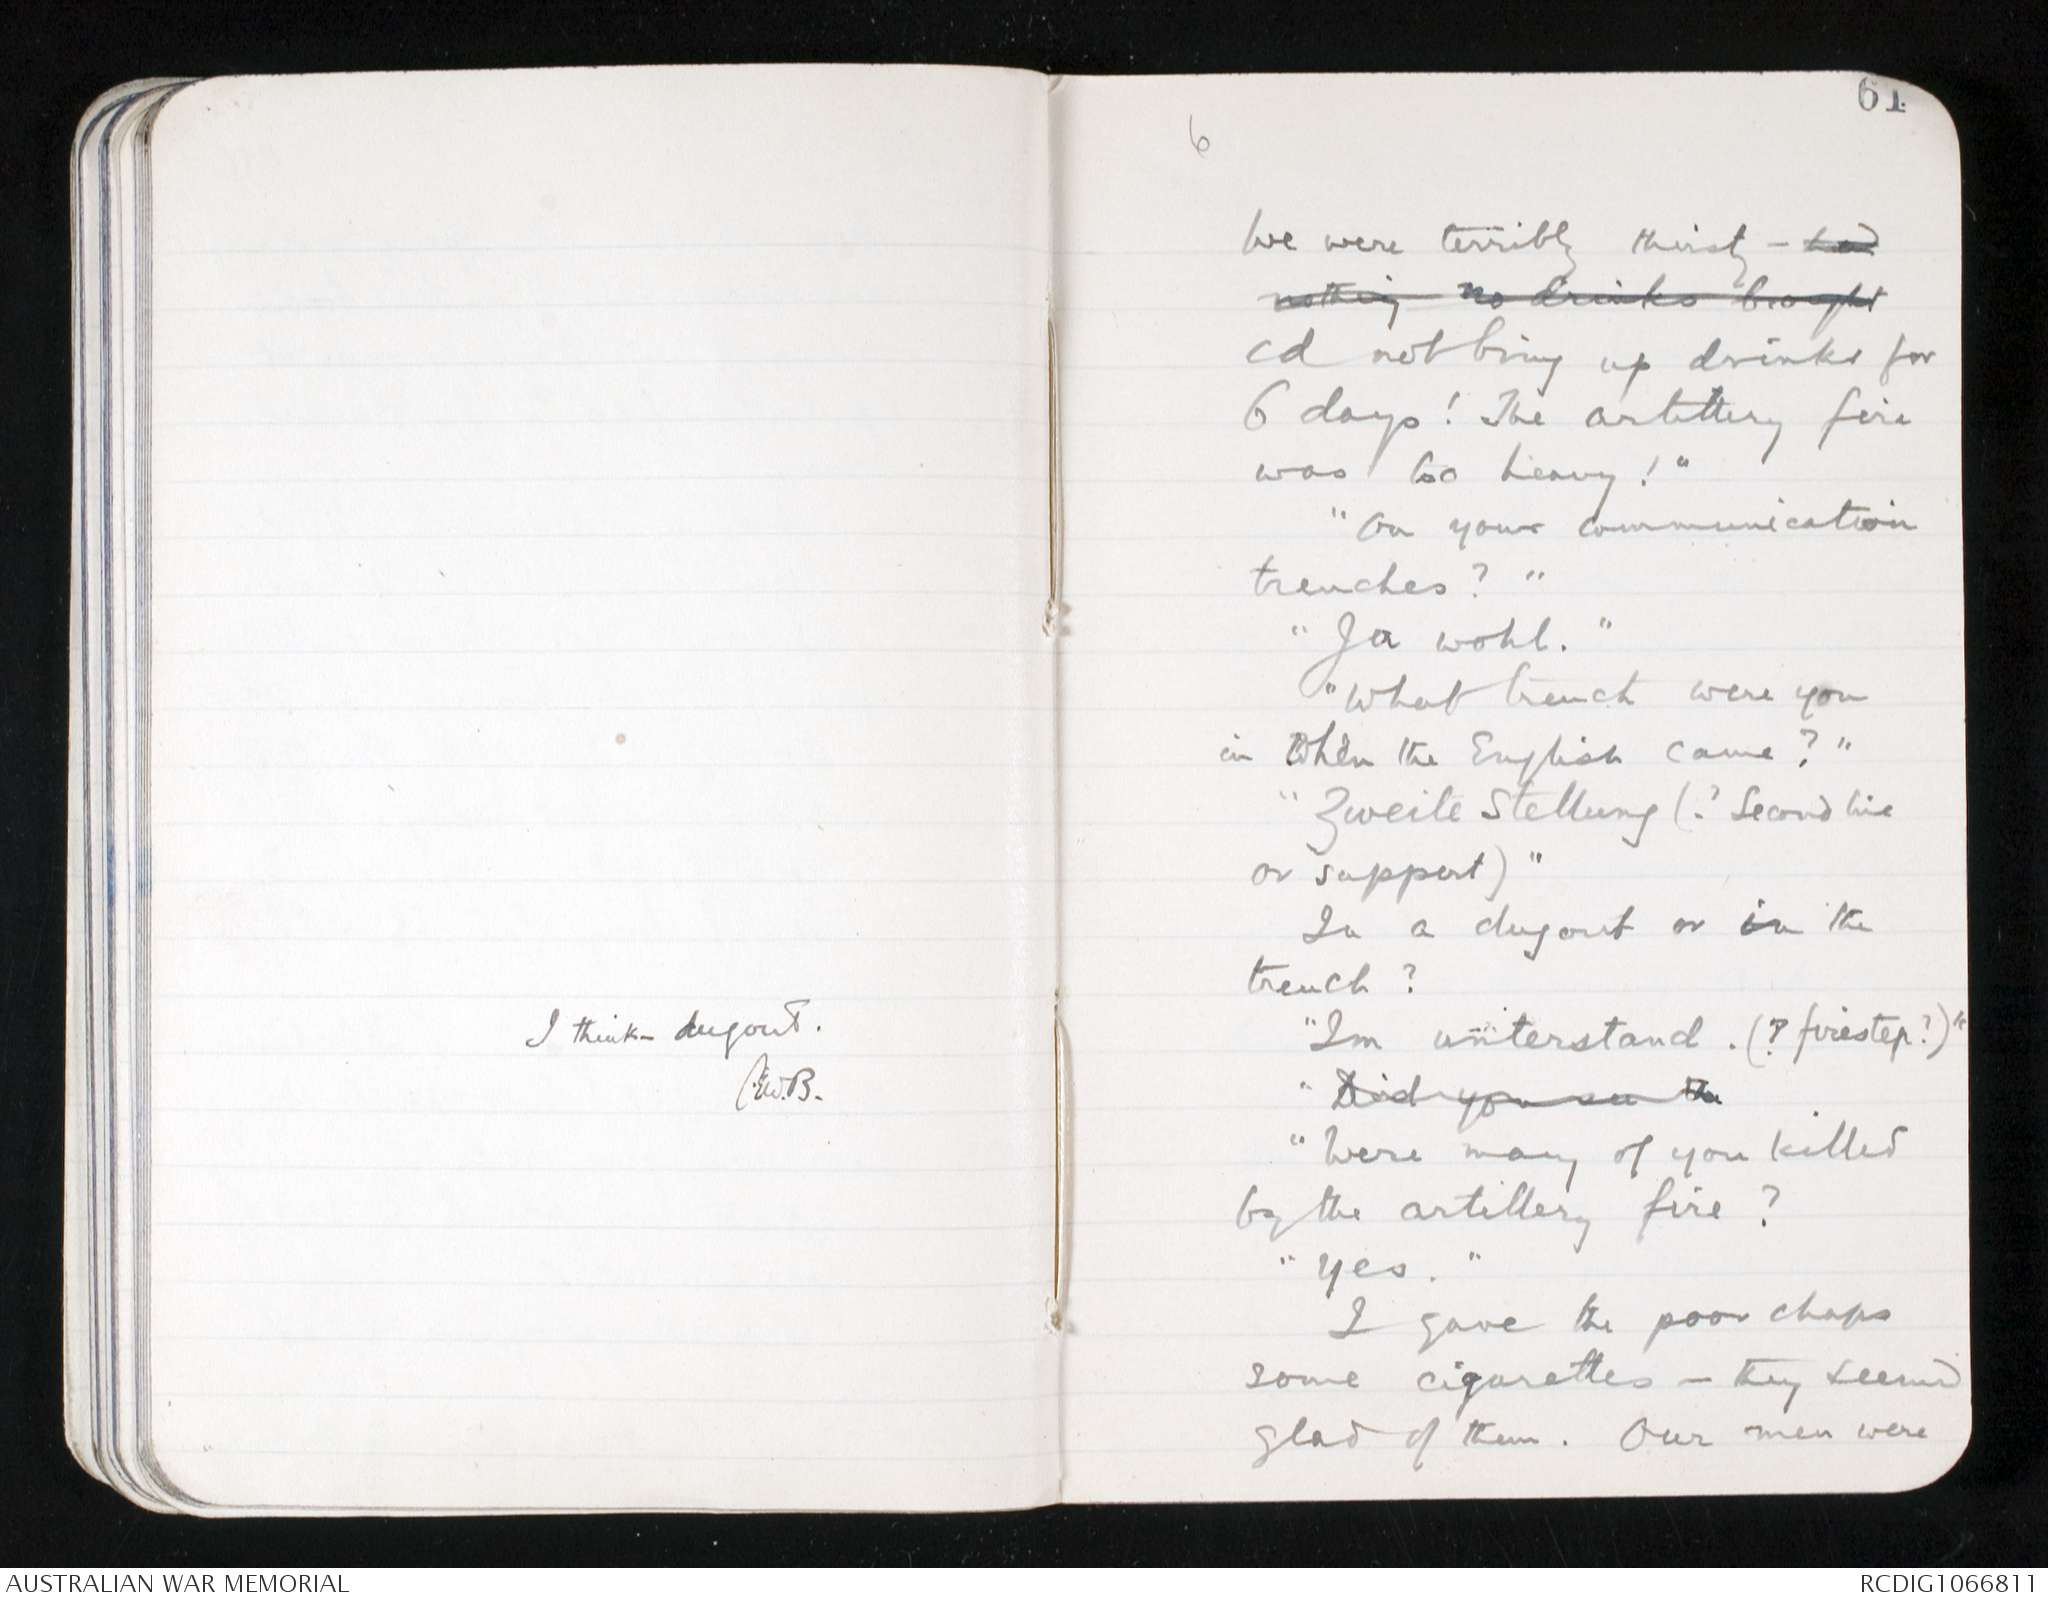 I think - dugout.
C.E.W.B.
61
6
We were terribly thirsty - had
nothing no drinks brought
cd not bring up drinks for
6 days! The artillery fire
was too heavy!"
"On your communication
trenches?"
"Ja wohl."
"What trench were you
in When the English came?"
"Zweite Stellung (? Second line
or support)"
In a dugout or in the
trench?
"Im unterstand. (? firestep?)"
"Did you see the
"Were many of you killed
by the artillery fire?
"Yes."
I gave the poor chaps
some cigarettes - they seemed
glad of them. Our men were
AUSTRALIAN WAR MEMORIAL
RCDIG1066811